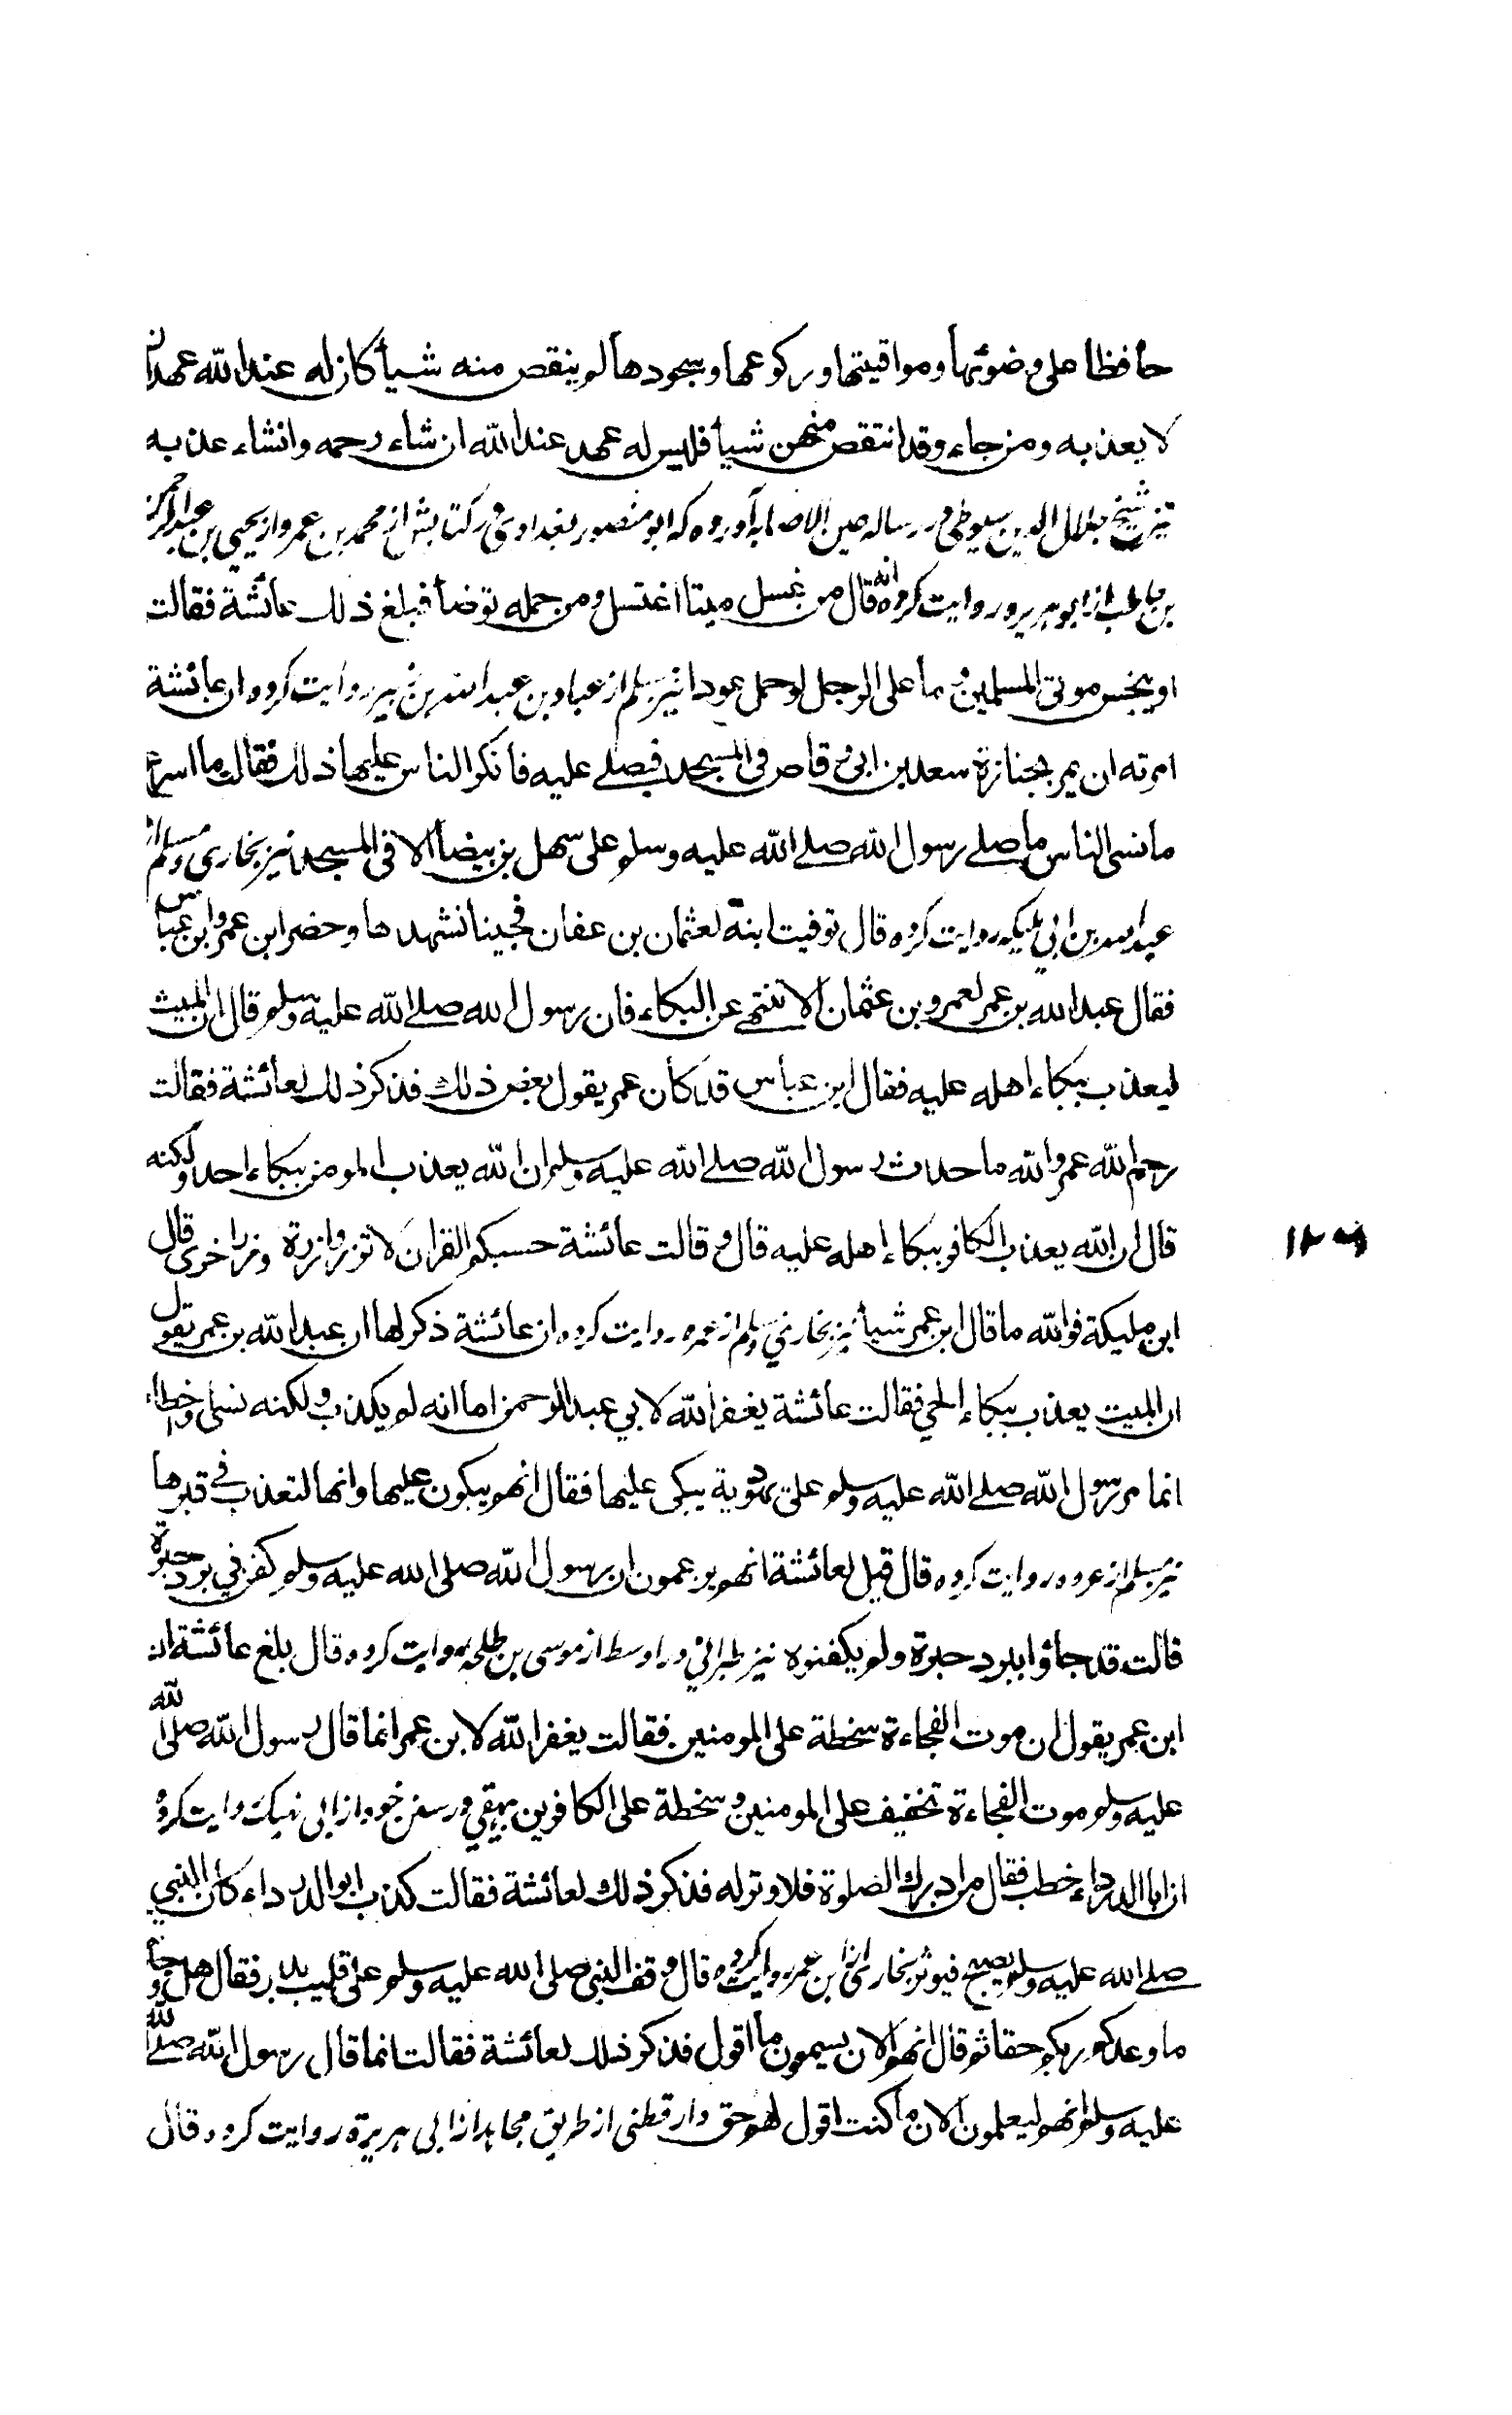 حافظا على وضوئها ومواقيتها وركوعها وسجودها لم ينقص منه شيأ كان له عند الله عهد ان
لا يعذبه ومن جاء وقد انتقص منهن شيأ فليس له عهد عند الله ان شاء رحمه وانشاء عذبه
نيز شيخ جلال الدين سيوطى در رساله عين الاصابه آورده كه ابو منصور بغدادى در كتابش از محمد بن عمرو از يحيى بن عبدالرحمن
بن حاطب از ابو هريره روايت كرده انه قال من غسل ميتا اغتسل ومن حمله توضأ فبلغ ذلك عائشة فقالت
او ينجس موتى المسلمين وما على الرجل لو حمل عودا نيز مسلم از عباد بن عبد الله بن زبير روايت كرده ان عائشة
امرته ان يمر بجنازة سعد بن ابى وقاص فى المسجد فيصلے عليه فانكر الناس عليها ذلك فقالت ما اسرع
ما نسى الناس ما صلے رسول الله صلے الله عليه وسلم على سهل بن بيضاء الا فى المسجد نيز بخارى ومسلم از
عبد الله بن ابي مليكه روايت كرده قال توفيت ابنة لعثمان بن عفان فجينا نشهدها وحضر ابن عمر وابن عباس
فقال عبد الله بن عمر لعمرو بن عثمان الا تنتهے عن البكاء فان رسول الله صلے الله عليه وسلم قال ان الميت
ليعذب ببكاء اهله عليه فقال ابن عباس قد كان عمر يقول بعض ذلك فذكر ذلك لعائشة فقالت
رحم الله عمر والله ما حدث رسول الله صلے الله عليه وسلم ان الله يعذب المومن ببكاء احد ولكنه
قال ان الله يعذب الكافر ببكاء اهله عليه قال وقالت عائشة حسبكم القران لا تزر وازرة وزر اخرى قال
١٢٩
ابن مليكة فوالله ما قال ابن عمر شيأ نيز بخاري ومسلم از عمره روايت كرده ان عائشة ذكر لها ان عبد الله بن عمر يقول
ان الميت يعذب ببكاء الحي فقالت عائشة يغفر الله لابي عبد الرحمن اما انه لم يكذب ولكنه نسى او اخطاء
انما مر رسول الله صلے الله عليه وسلم على يهودية يبكى عليها فقال انهم يبكون عليها وانها لتعذب في قبرها
نيز مسلم از عروه روايت كرده قال قيل لعائشة انهم يزعمون ان رسول الله صلى الله عليه وسلم كفن في برد حبرة
قالت قد جاؤا ببرد حبرة ولم يكفنوه نيز طبرانى در اوسط از موسى بن طلحه روايت كرده قال بلغ عائشة ان
ابن عمر يقول ان موت الفجاءة سخطة على المومنين فقالت يغفر الله لابن عمر انما قال رسول الله صلى الله
عليه وسلم موت الفجاءة تخفيف على المومنين وسخطة على الكافرين بيهقي در سنن خود از ابى نهيك روايت كرده
ان ابا الدرداء خطب فقال من ادرك الصلوة فلا وتر له فذكر ذلك لعائشة فقالت كذب ابو الدرداء كان النبي
صلے الله عليه وسلم يصبح فيوتر بخارى از ابن عمر روايت كرده قال وقف النبى صلى الله عليه وسلم على قليب بدر فقال هل وجدتم
ما وعدكم ربكم حقا ثم قال انهم الان يسمعون ما اقول فذكر ذلك لعائشة فقالت انما قال رسول الله صلے الله
عليه وسلم انهم ليعلمون الان ما كنت اقول لهم حق دارقطنى از طريق مجاهد از ابى هريرة روايت كرده قال